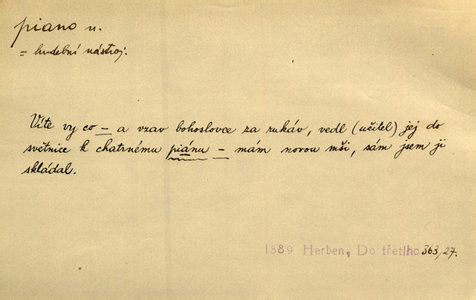 piano n.
= hudební nástroj.
Víte vy co – a vzav bohoslovce za rukáv, vedl (učitel) jej do
světnice k chatrnému piánu – mám novou mši, sám jsem ji
skládal.
1889 Herben, Do třetího 363,27.